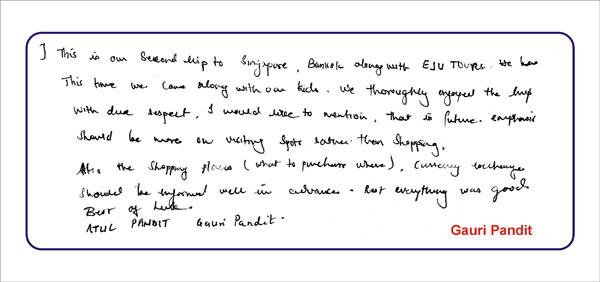 ] This is our Second trip to Singapore, Bankok along with EJU TOURS. We have
This time we came along with our kids. We thoroughly enjoyed the trip
with due respect, I would like to mention, that in future. emphasis
should be more on visiting spots rather then shopping.
Also the shopping places (what to purchase where), currency exchange
should be informed well in advance. Rest everything was good.
Best of Luck.
ATUL PANDIT Gauri Pandit.
Gauri Pandit